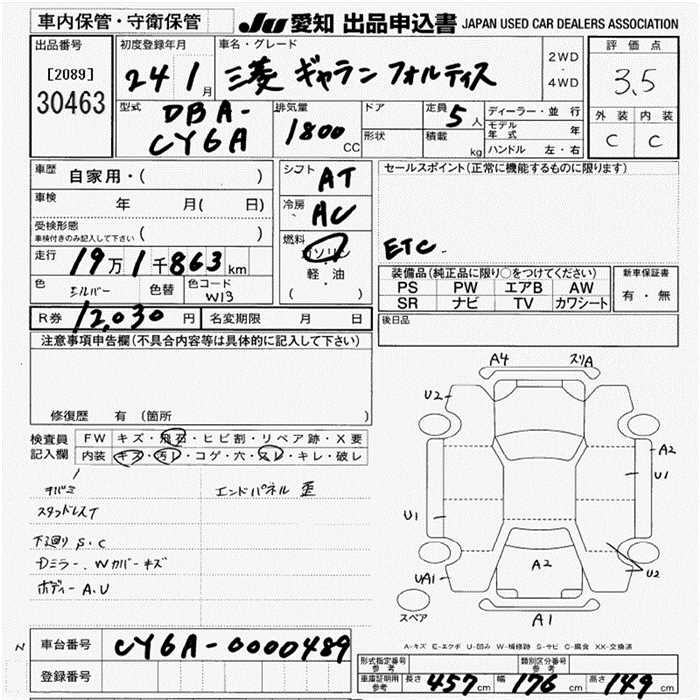 車内保管・守衛保管
JU 愛知 出品申込書 JAPAN USED CAR DEALERS ASSOCIATION
出品番号
[2089]
30463
初度登録年月
24 1月
車名・グレード
三菱 ギャラン フォルティス
2WD
・
4WD
評価点
3.5
外装 内装
C C
型式
DBA-
CY6A
排気量
1800 CC
ドア
形状
定員 5人
積載 kg
ディーラー・並行
モデル年式 年
ハンドル 左・右
車歴
自家用・( )
車検
年 月( 日)
受検形態
車検付きのみ記入して下さい
( )
走行
19万1千863km
色
シルバー
色替
色コード
W13
シフト
AT
冷房
AC
燃料
ガソリン
軽・油
( )
セールスポイント(正常に機能するものに限ります)
ETC
装備品(純正品に限り○をつけてください)
PS PW エアB AW
SR ナビ TV カワシート
新車保証書
有・無
R券 12,030円
名変期限 月 日
後日品
注意事項申告欄(不具合内容等は具体的に記入して下さい)
修復歴 有(箇所
検査員
記入欄
FW キズ・飛石・ヒビ割・リペア跡・X要
内装 キズ・汚レ・コゲ・穴・スレ・キレ・破レ
ヤバミ
スタッドレスT
下廻り S.C
Dミラー.Wカバーキズ
ボディーA.U
エンドパネル 歪
A4 スリA
U2
A2
U1
U1
A2
UA1
U2
スペア
A1
A-キズ E-エクボ U-凹み W-補修跡 S-サビ C-腐食 XX-交換済
車台番号
CY6A-0000489
登録番号
形式指定番号
参考
類別区分番号
参考
車庫証明用
参考
長さ 457cm 幅 176cm 高さ 149cm